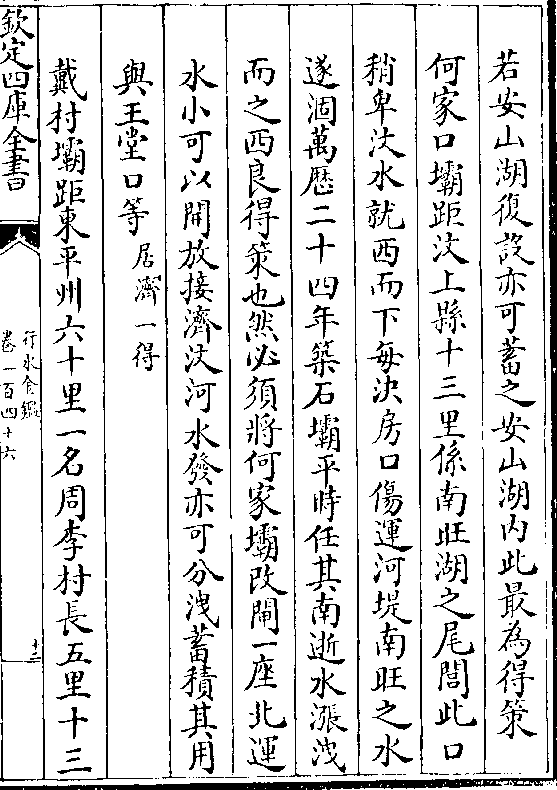 若安山湖復設亦可蓄之安山湖内此最為得策
何家口壩距汶上縣十三里係南旺湖之尾閭此口
稍卑汶水就西而下每決房口傷運河堤南旺之水
遂涸萬歴二十四年築石壩平時任其南逝水漲洩
而之西良得策也然必須將何家壩改閘一座北運
水小可以開放接濟汶河水發亦可分洩蓄積其用
與王堂口等居濟一得
戴村壩距東平州六十里一名周李村長五里十三
欽定四庫全書
行水金鑑
卷一百四十六
十三